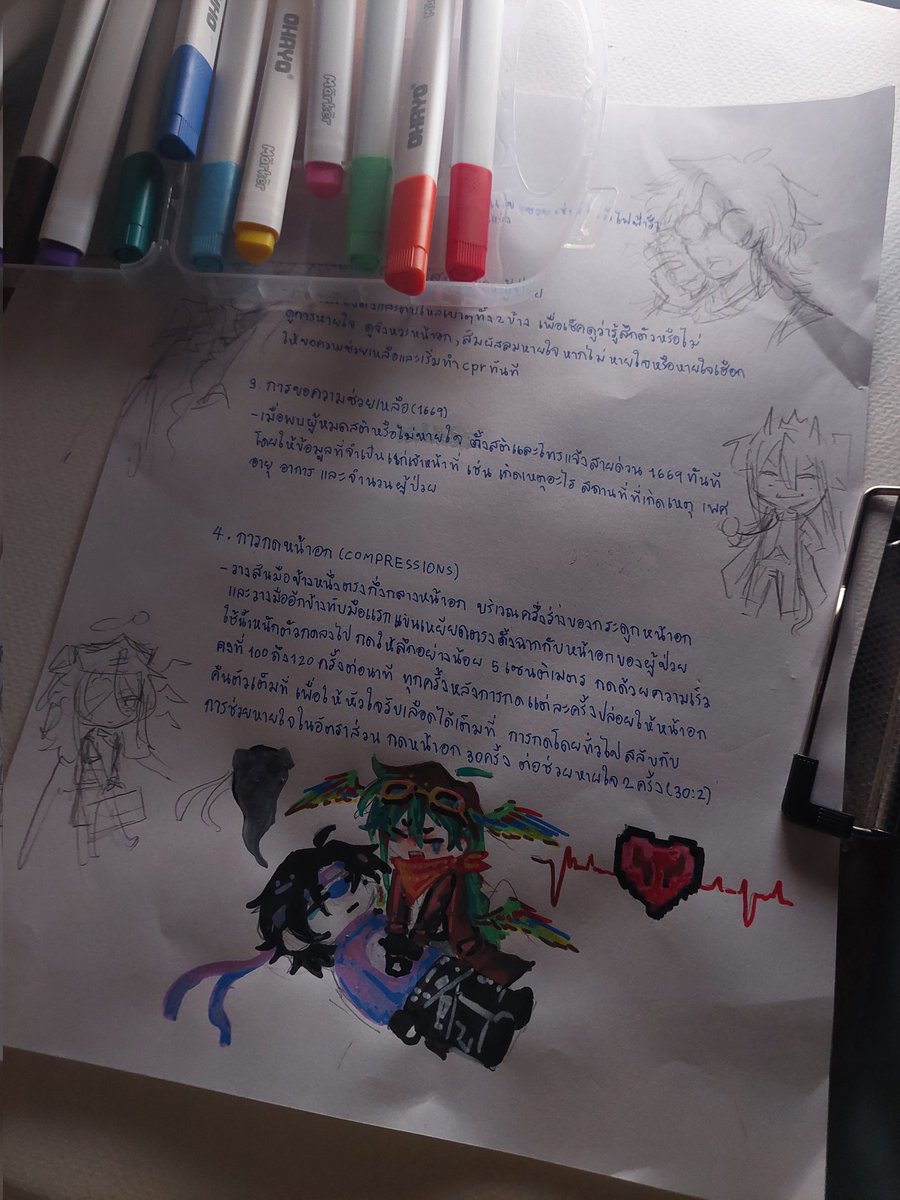 OHAYO
Märker
OHAYO
Märker
OHAYO
ดูการหายใจ ดูจังหวะหน้าอก, สัมผัสลมหายใจ หากไม่หายใจหรือหายใจเฮือก
ให้ขอความช่วยเหลือและเริ่มทำ cpr ทันที
3. การขอความช่วยเหลือ(1669)
-เมื่อพบผู้หมดสติหรือไม่หายใจ ตั้งสติและโทรแจ้งสายด่วน 1669 ทันที
โดยให้ข้อมูลที่จำเป็นแก่เจ้าหน้าที่ เช่น เกิดเหตุอะไร สถานที่ที่เกิดเหตุ เพศ
อายุ อาการ และจำนวนผู้ป่วย
4. การกดหน้าอก (COMPRESSIONS)
-วางส้นมือข้างหนึ่งตรงกึ่งกลางหน้าอก บริเวณครึ่งล่างของกระดูกหน้าอก
และวางมืออีกข้างทับมือแรก แขนเหยียดตรงตั้งฉากกับหน้าอกของผู้ป่วย
ใช้น้ำหนักตัวกดลงไป กดให้ลึกอย่างน้อย 5 เซนติเมตร กดด้วยความเร็ว
คงที่ 100 ถึง 120 ครั้งต่อนาที ทุกครั้งหลังการกดแต่ละครั้งปล่อยให้หน้าอก
คืนตัวเต็มที่ เพื่อให้หัวใจรับเลือดได้เต็มที่ การกดโดยทั่วไป สลับกับ
การช่วยหายใจในอัตราส่วน กดหน้าอก 30ครั้ง ต่อช่วยหายใจ 2 ครั้ง(30:2)